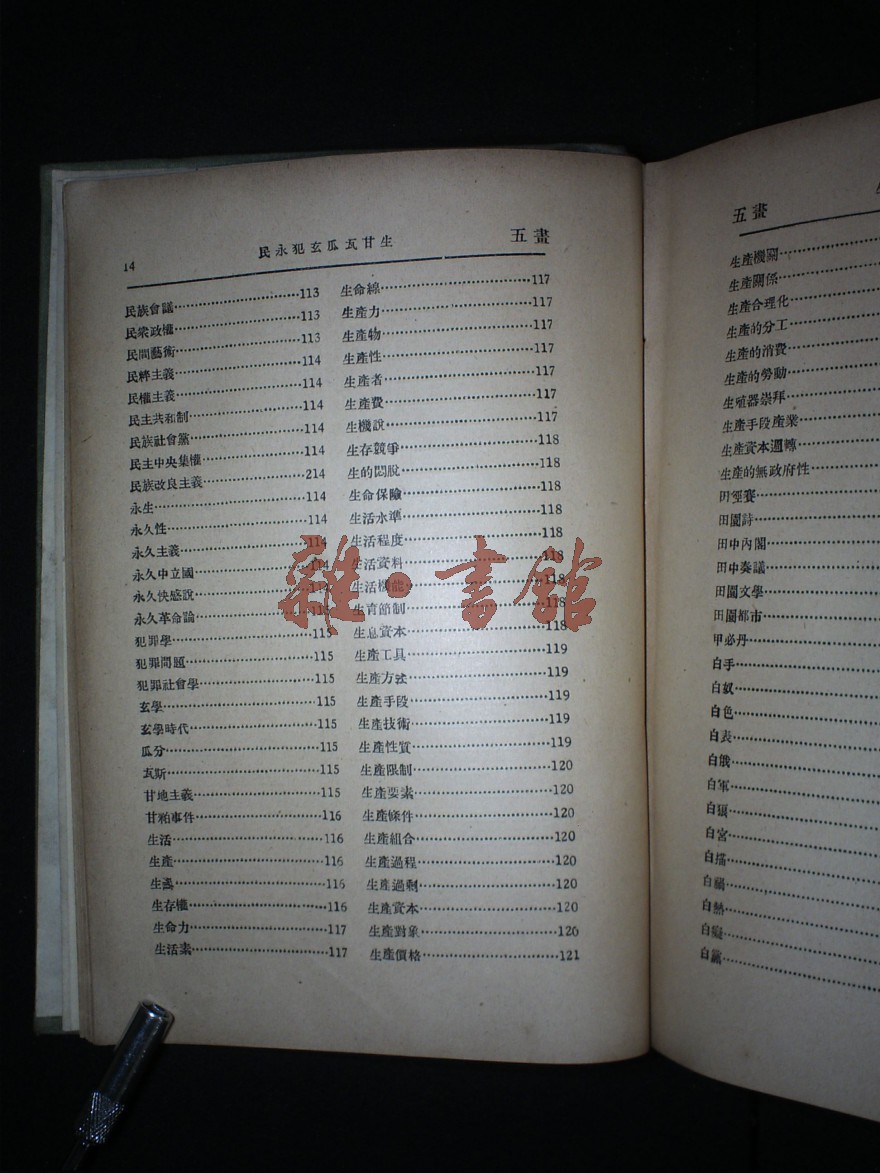 14 民永犯玄瓜瓦甘生 五畫
民族會議……113
民衆政權……113
民間藝術……113
民粹主義……114
民權主義……114
民主共和制……114
民族社會黨……114
民主中央集權……114
民族改良主義……214
永生……114
永久性……114
永久主義……114
永久中立國……114
永久快感說……114
永久革命論……115
犯罪學……115
犯罪問題……115
犯罪社會學……115
玄學……115
玄學時代……115
瓜分……115
瓦斯……115
甘地主義……115
甘粕事件……116
生活……116
生產……116
生產……116
生存權……116
生命力……117
生活素……117
生命線……117
生產力……117
生產物……117
生產性……117
生產者……117
生產費……117
生機說……117
生存競爭……118
生的悶脫……118
生命保險……118
生活水準……118
生活程度……118
生活資料……118
生活機能……118
生育節制……118
生息資本……118
生產工具……119
生產方式……119
生產手段……119
生產技術……119
生產性質……119
生產限制……120
生產要素……120
生產條件……120
生產組合……120
生產過程……120
生產過剩……120
生產資本……120
生產對象……120
生產價格……121
雜·書館
五畫
生產機關……
生產關係……
生產合理化……
生產的分工……
生產的消費……
生產的勞動……
生殖器崇拜……
生產手段產業……
生產資本週轉……
生產的無政府性……
田徑賽……
田園詩……
田中內閣……
田中奏議……
田園文學……
田園都市……
甲必丹……
白手……
白奴……
白色……
白表……
白俄……
白軍……
白宮……
白描……
白禍……
白熱……
白癡……
白黨……